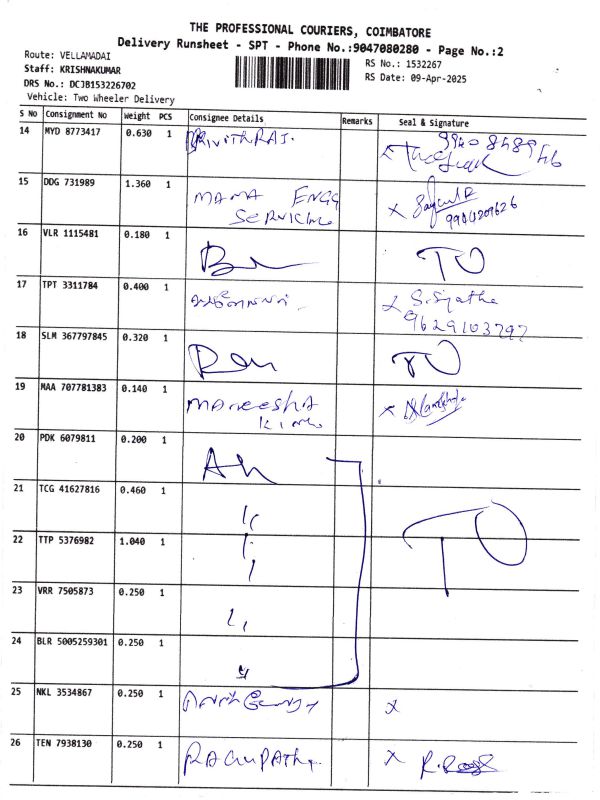 THE PROFESSIONAL COURIERS, COIMBATORE
Delivery Runsheet - SPT - Phone No.:9047080280 - Page No.:2
Route: VELLAMADAI
RS No.: 1532267
Staff: KRISHNAKUMAR
RS Date: 09-Apr-2025
DRS No.: DCJB153226702
Vehicle: Two Wheeler Delivery
S No Consignment No Weight PCS Consignee Details Remarks Seal & Signature
14 MYD 8773417 0.630 1
15 DDG 731989 1.360 1 MAMA ENGG
SERVICING
9904209626
16 VLR 1115481 0.180 1 TO
17 TPT 3311784 0.400 1 S. Sujatha
9629103797
18 SLM 367797845 0.320 1 TO
19 MAA 707781383 0.140 1 MANEESHA
20 PDK 6079811 0.200 1
21 TCG 41627816 0.460 1 TO
22 TTP 5376982 1.040 1
23 VRR 7505873 0.250 1
24 BLR 5005259301 0.250 1
25 NKL 3534867 0.250 1 x
26 TEN 7938130 0.250 1 RAGUPATHY x